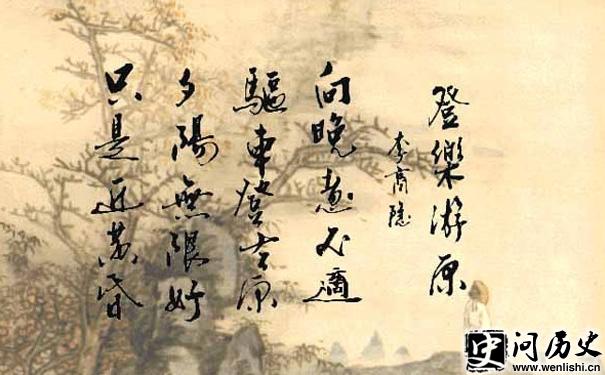 登樂游原
李商隱
向晚意不適
驅車登古原
夕陽無限好
只是近黃昏
史 问历史
www.wenlishi.cn